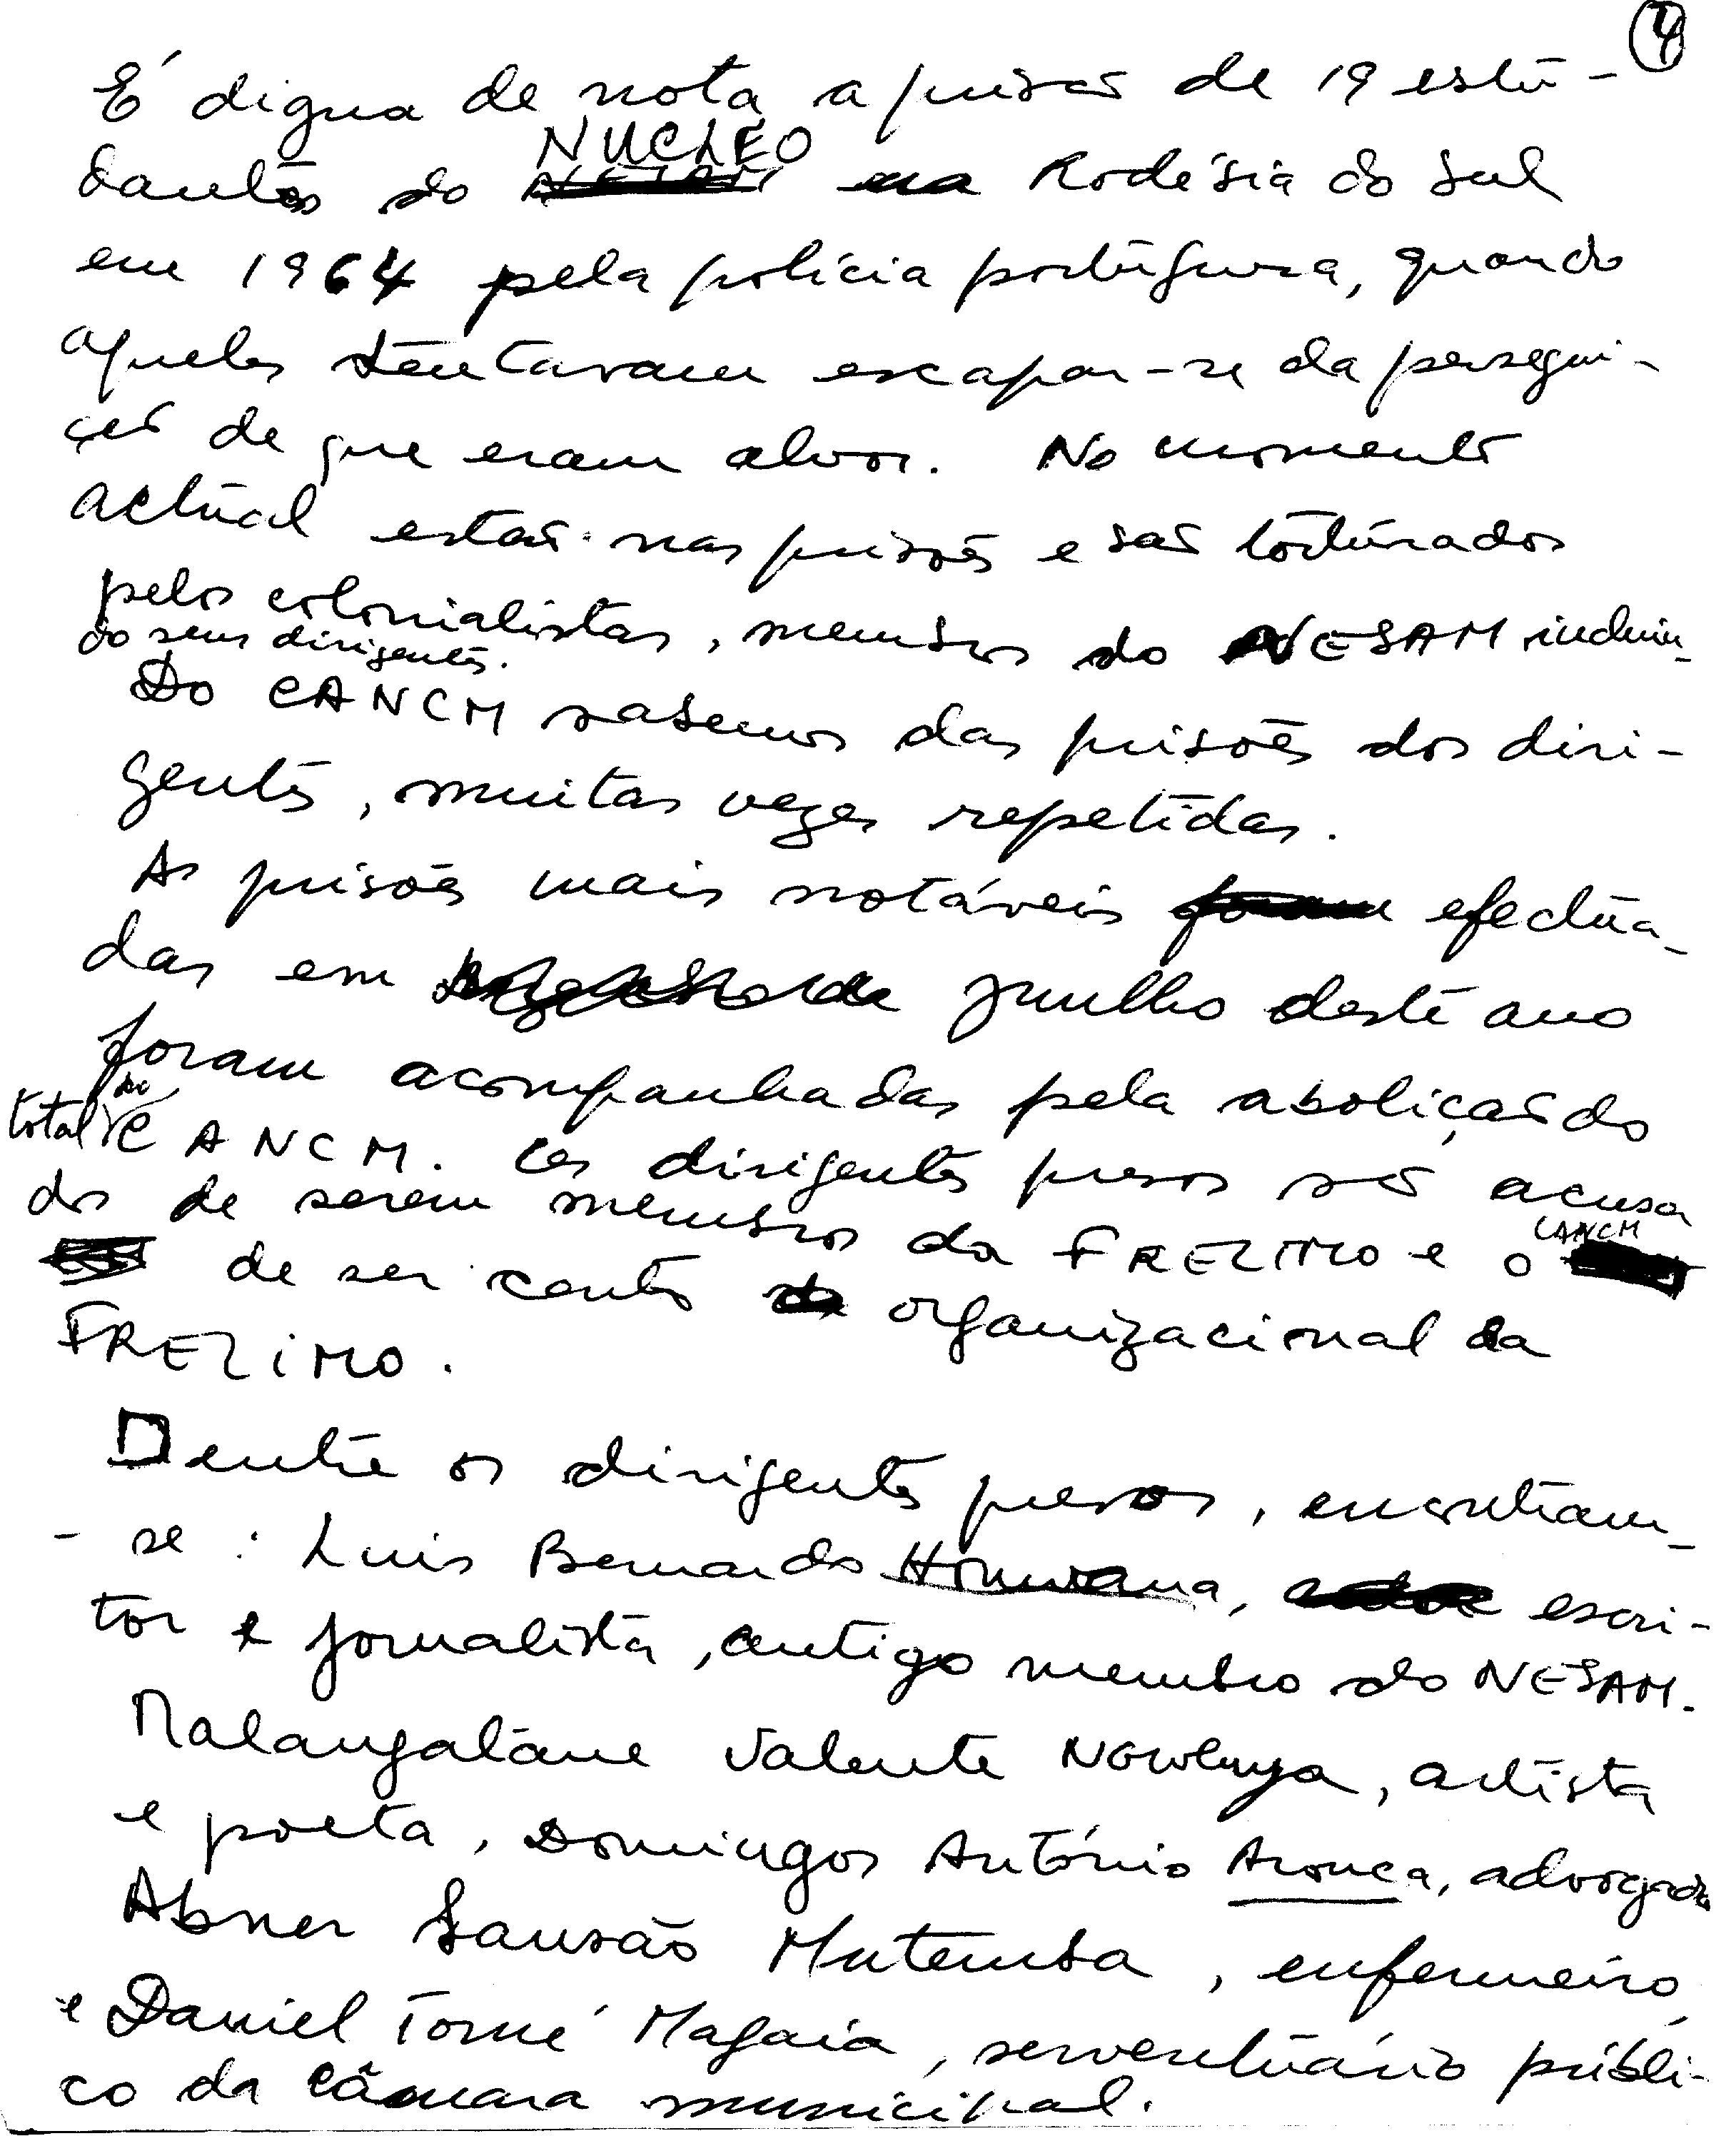 4
É digna de nota a prisão de 19 estu-
dantes do NUCLEO na Rodésia do Sul
em 1964 pela polícia portuguesa, quando
aqueles tentavam escapar-se da persegui-
ção de que eram alvos. No momento
actual estão nas prisões e são torturados
pelos colonialistas, membros do NESAM incluin-
do seus dirigentes.
Do CANCM sabemos das prisões dos diri-
gentes, muitas vezes repetidas.
As prisões mais notáveis foram efectua-
das em Junlho deste ano
foram acompanhadas pela abolição do
total do CANCM. Os dirigentes presos são acusa
dos de serem membros da FRELIMO e o CANCM
de ser centro organizacional da
FRELIMO.
Dentre os dirigentes presos, encontram-
-se: Luis Bernardo Honwana, escri-
tor e jornalista, antigo membro do NESAM.
Malangatane Valente Ngwenya, artista
e poeta, Domingos António Arouca, advogado
Abner Sansão Mutemba, enfermeiro
e Daniel Tomé Magaia, serventuário públi-
co da Câmara municipal.